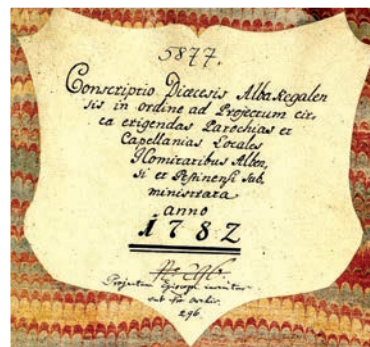 5877.
Conscriptio Diœcesis AlbaRegalen
sis in ordine ad Projectum cir,
ca erigendas Parochias et
Capellanias Locales
Comitatibus Alben,
si et Pestinensi sub,
ministrata
anno
1782
No 296.
Projectum Episcopi
296.